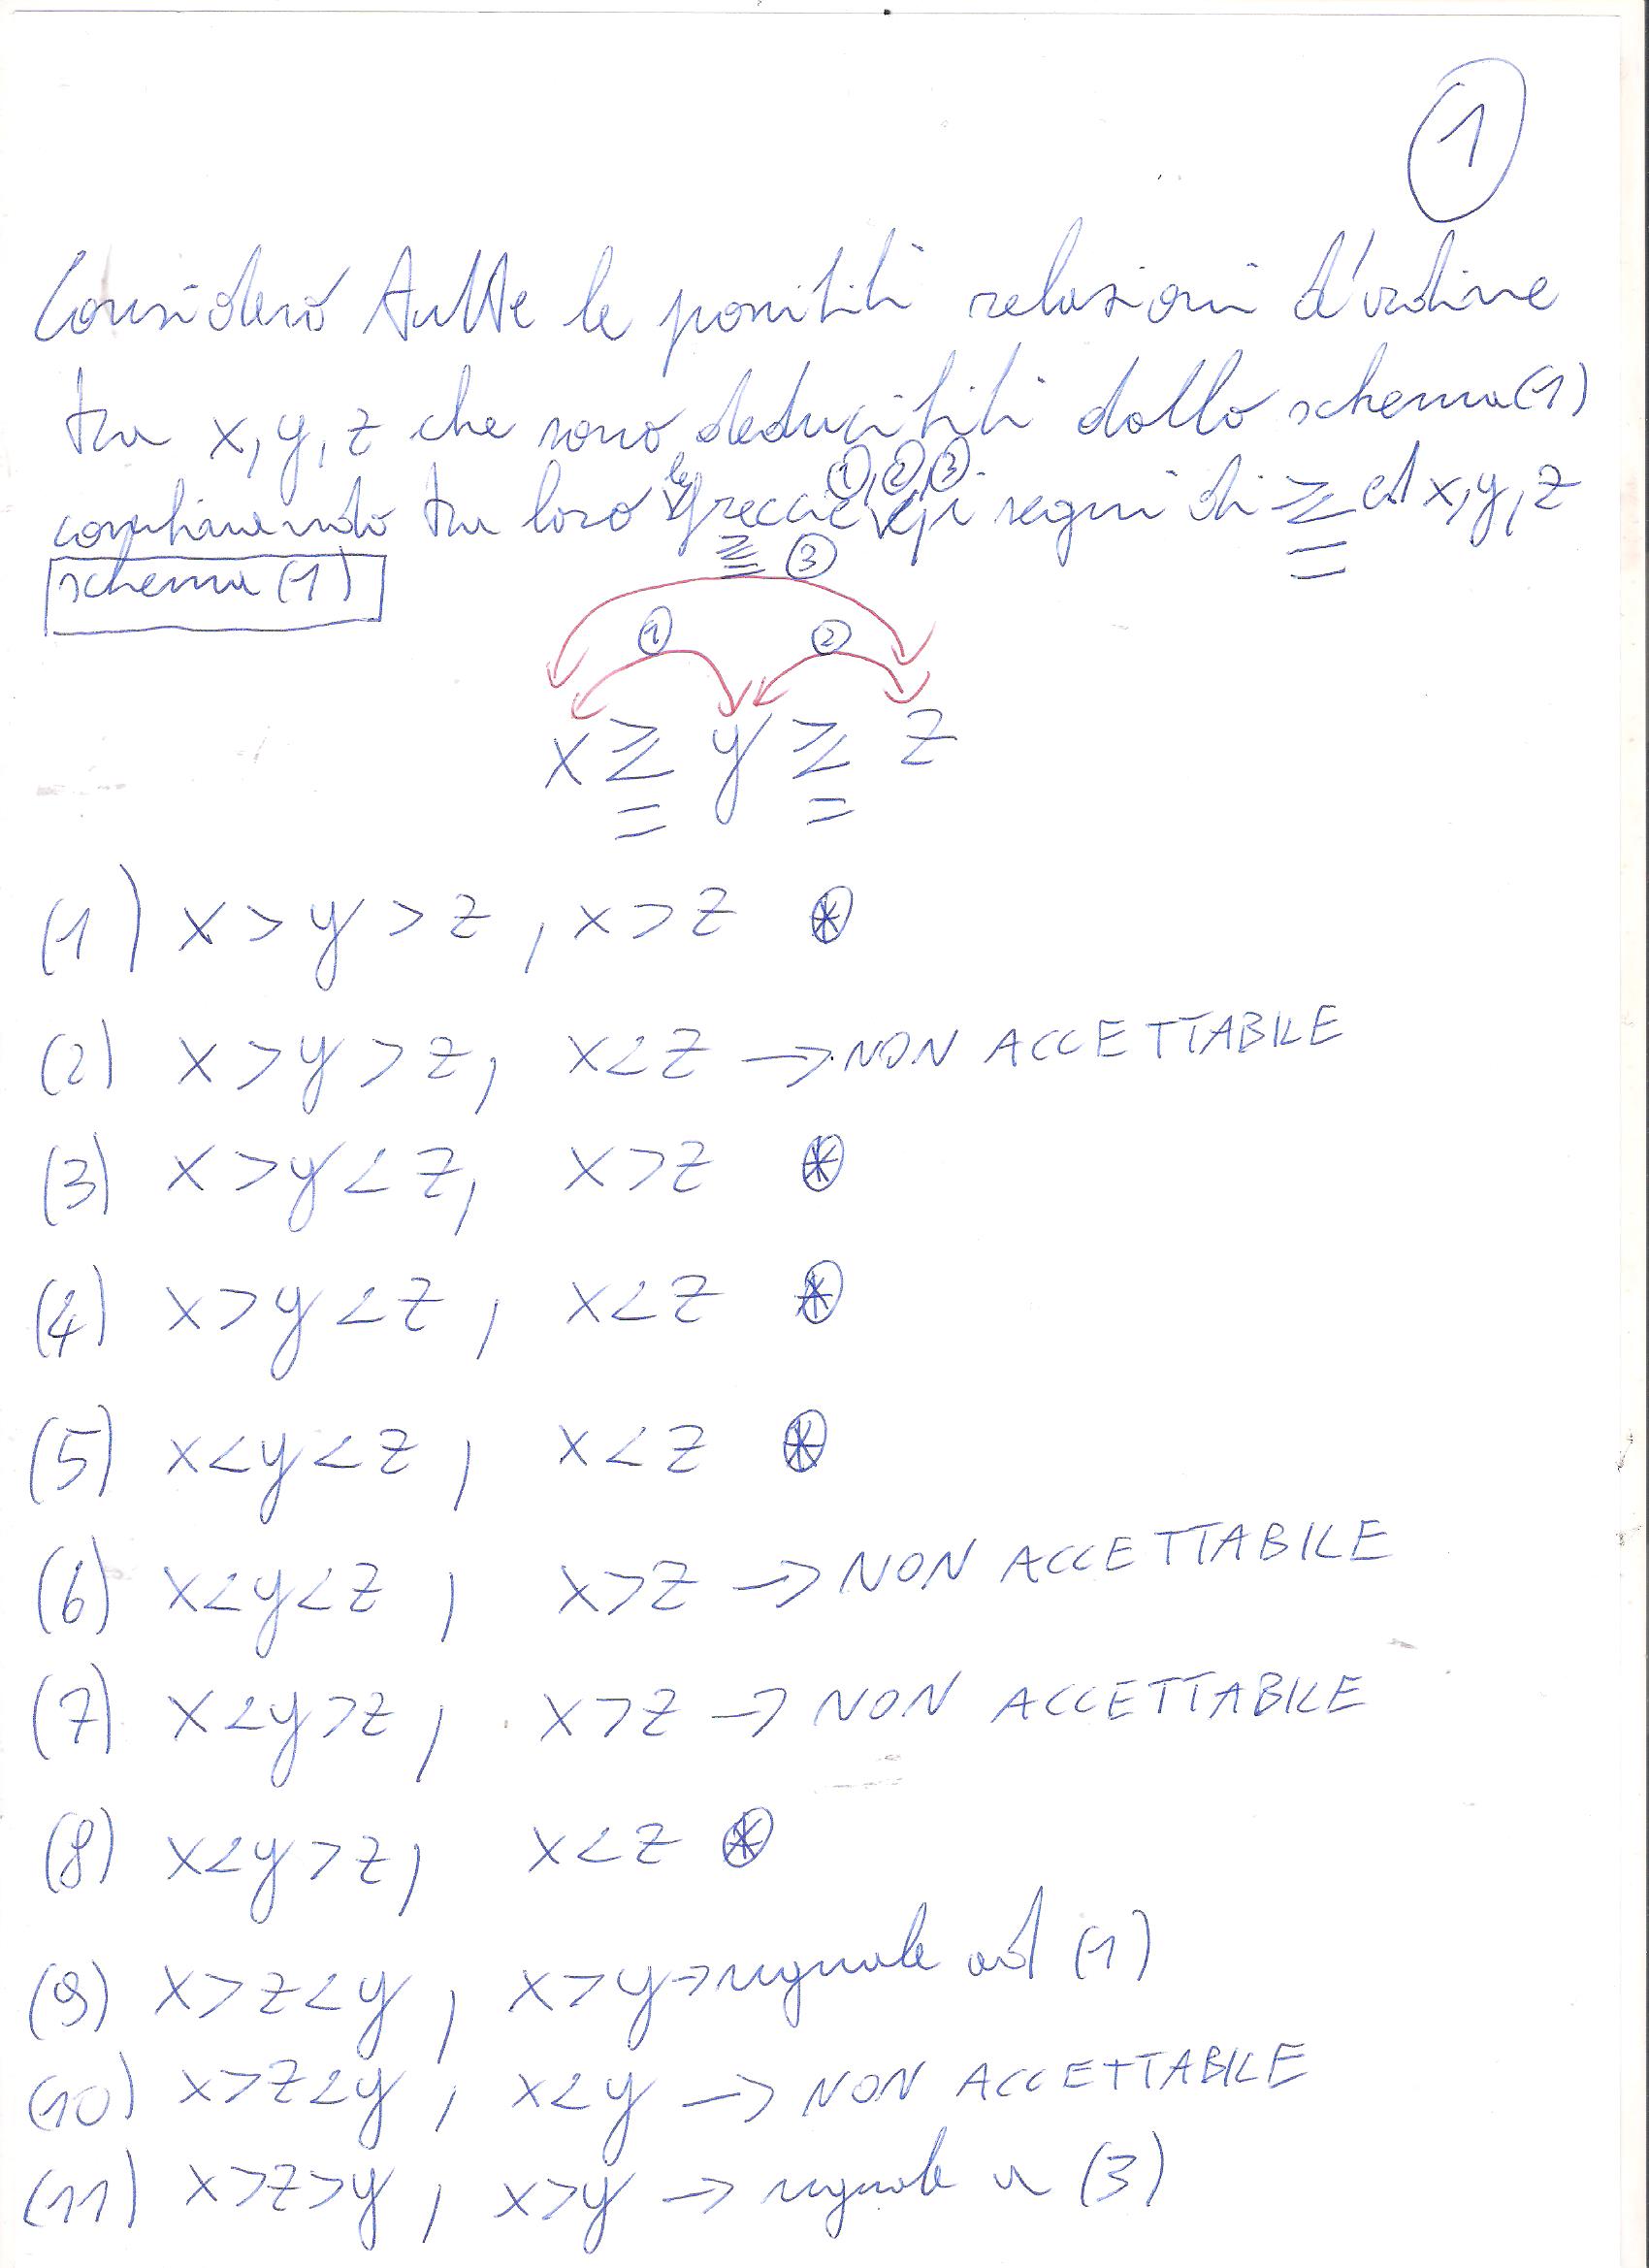 1
Considero tutte le possibili relazioni d'ordine
tra x, y, z che sono deducibili dallo schema (1)
combinando tra loro le frecce ①, ②, ③ e i segni di ≷ = ad x, y, z
schema (1)
≷ = ③
① ②
x ≷ = y ≷ = z
(1) x > y > z , x > z ⊛
(2) x > y > z, x < z → NON ACCETTABILE
(3) x > y < z, x > z ⊛
(4) x > y < z , x < z ⊛
(5) x < y < z , x < z ⊛
(6) x < y < z , x > z → NON ACCETTABILE
(7) x < y > z , x > z → NON ACCETTABILE
(8) x < y > z, x < z ⊛
(9) x > z < y , x > y → uguale ad (1)
(10) x > z < y , x < y → NON ACCETTABILE
(11) x > z > y , x > y → uguale a (3)